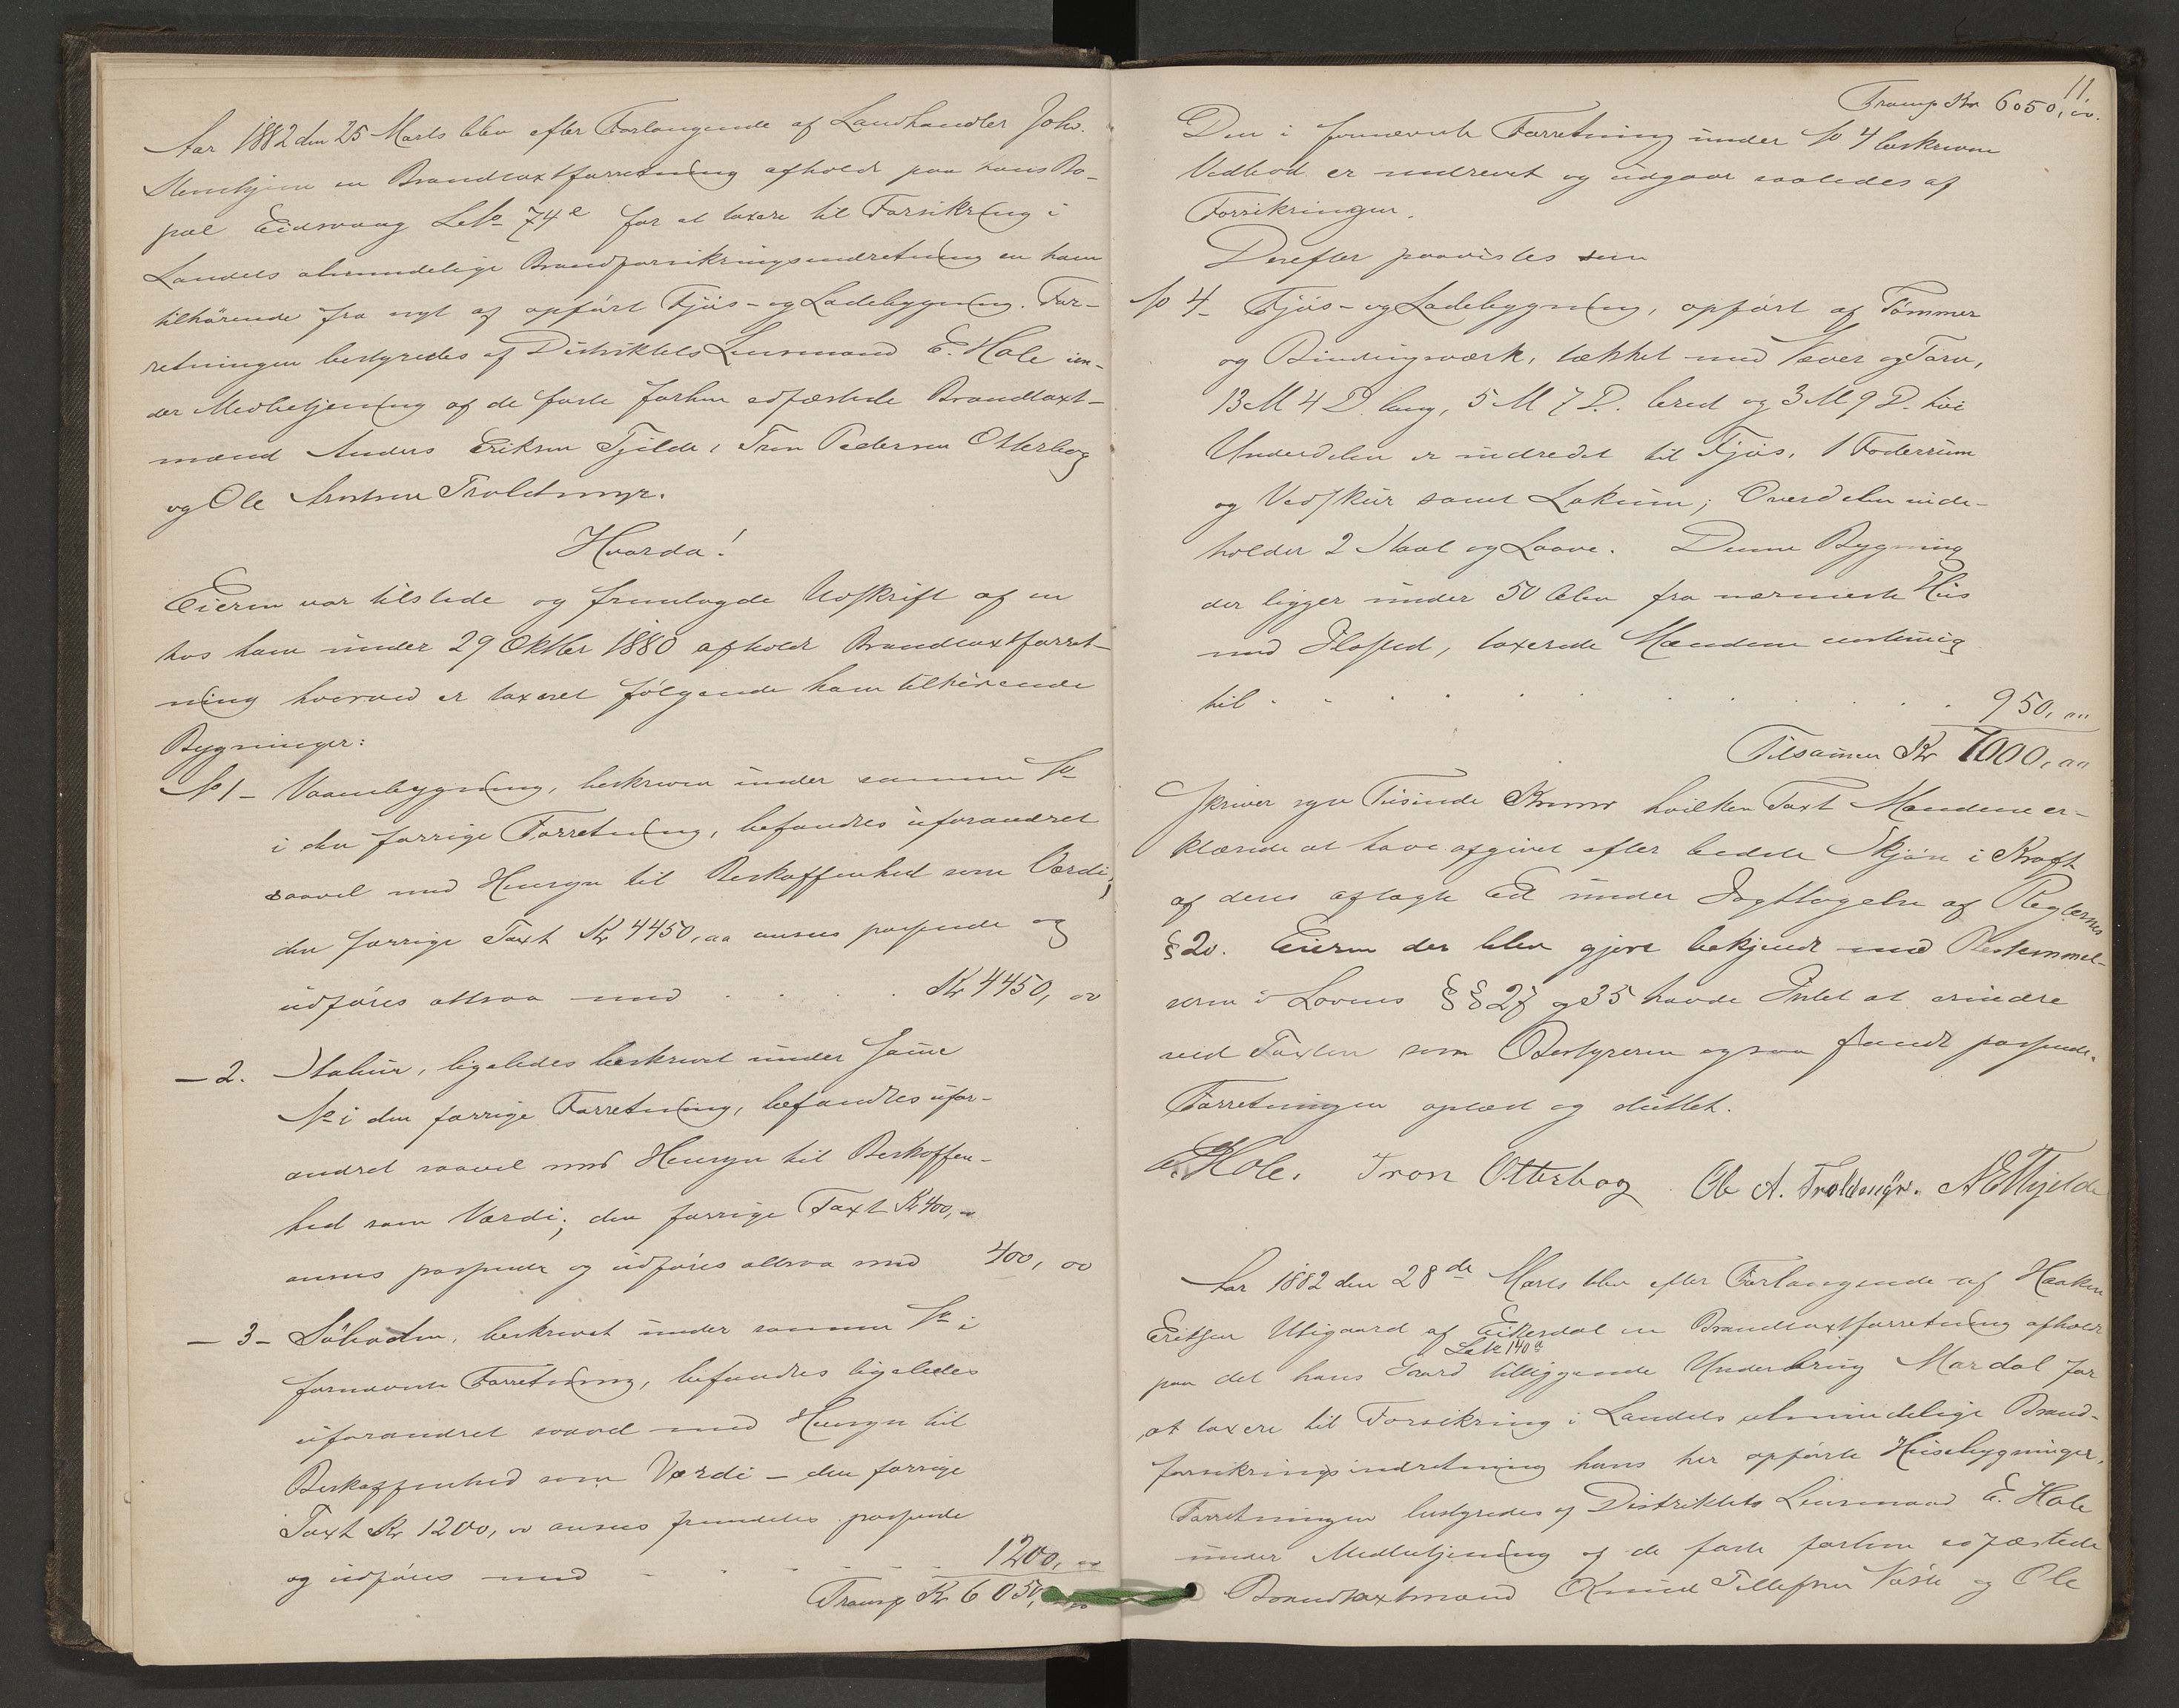 Aar 1882 den 25 Marts blev efter Forlangende af Landhandler Joh.
Stenhjem en Brandtaxtforretning afholdt paa hans Bo-
pæl Eidsvaag Lbno 74e for at taxere til Forsikring i
Landets almindelige Brandforsikringsindretning en ham
tilhørende fra nyt af opført Fjøs- og Ladebygning. For-
retningen bestyredes af Distriktets Lensmand E. Hole un-
der Medbetjening af de faste forhen edfæstede Brandtaxt-
mænd Anders Eriksen Tjelde, Tron Pedersen Otterbog
og Ole Troldmyr.
Hvorda!
Eieren var tilstede og fremlagde Udskrift af en
hos ham under 29 Oktber 1880 afholdt Brandtaxtforret-
ning hvorved er taxeret følgende ham tilhørende
Bygninger:
No 1 - Vaanebygning, beskreven under samme No
i den forrige Forretning, befandtes uforandret
saavel med Hensyn til Beskaffenhed som Værdi;
den forrige Taxt Kr 4450,00 ansees passende og
udføres altsaa med . . . . Kr 4450,00
- 2. Stabur, ligeledes beskrevet under samme
No i den forrige Forretning, befandtes ufor-
andret saavel med Hensyn til Beskaffen-
hed som Værdi; den forrige Taxt Kr 400,00
ansees passende og udføres altsaa med 400,00
- 3 - Søboden, beskrevet under samme No i
fornævnte Forretning, befandtes ligeledes
uforandret saavel med Hensyn til
Beskaffenhed som Værdi - den forrige
Taxt Kr 1200,00 ansees fremdeles passende
og udføres med - - - - 1200,00
Transp Kr 6050,
11.
Transp Kr 6050,00.
Den i fornævnte Forretning under No 4 beskrevne
Vedbod er nedrevet og udgaar saaledes af
Forsikringen.
Derefter paavistes som
No 4 - Fjøs- og Ladebygning, opført af Tømmer
og Bindingsværk, tækket med Næver og Torv,
13 M 4 D. lang, 5 M 7 D. bred og 3 M 9 D. høi
Underdelen er indredet til Fjøs, 1 Foderrum
og Vedskur samt Lokum; Overdelen inde-
holder 2 Staal og Laave. Denne Bygning
der ligger under 50 Alen fra nærmeste Hus
med Ildsted, taxerede Mændene enstemmig
til . . . . . . . . 950,00
Tilsammen Kr 7000,00
Skriver syv Tusinde Kroner hvilken Taxt Mændene er-
klærede at have afgivet efter bedste Skjøn i Kraft
af deres aflagte Ed under Iagttagelse af Reglernes
§ 20. Eieren der blev gjort bekjendt med Bestemmel-
serne i Lovens §§ 27 og 35 havde Intet at erindre
ved Taxten som Bestyreren ogsaa fandt passende.
Forretningen oplæst og sluttet.
E. Hole. Tron Otterbog Ole A. Troldmyr. A E Tjelde
Aar 1882 den 28de Marts blev efter Forlangende af Haaken
Eriksen Utigaard af Eikesdal en Brandtaxtforretning afholdt
Lbno 140a
paa det hans Gaard tilliggende Underbrug Mardal for
at taxere til Forsikring i Landets almindelige Brand-
forsikringsindretning hans her opførte Husebygninger,
Forretningen bestyredes af Distriktets Lensmand E. Hole
under Medbetjening af de faste forhen edfæstede
Brandtaxtmænd Knud Tollefsen og Ole